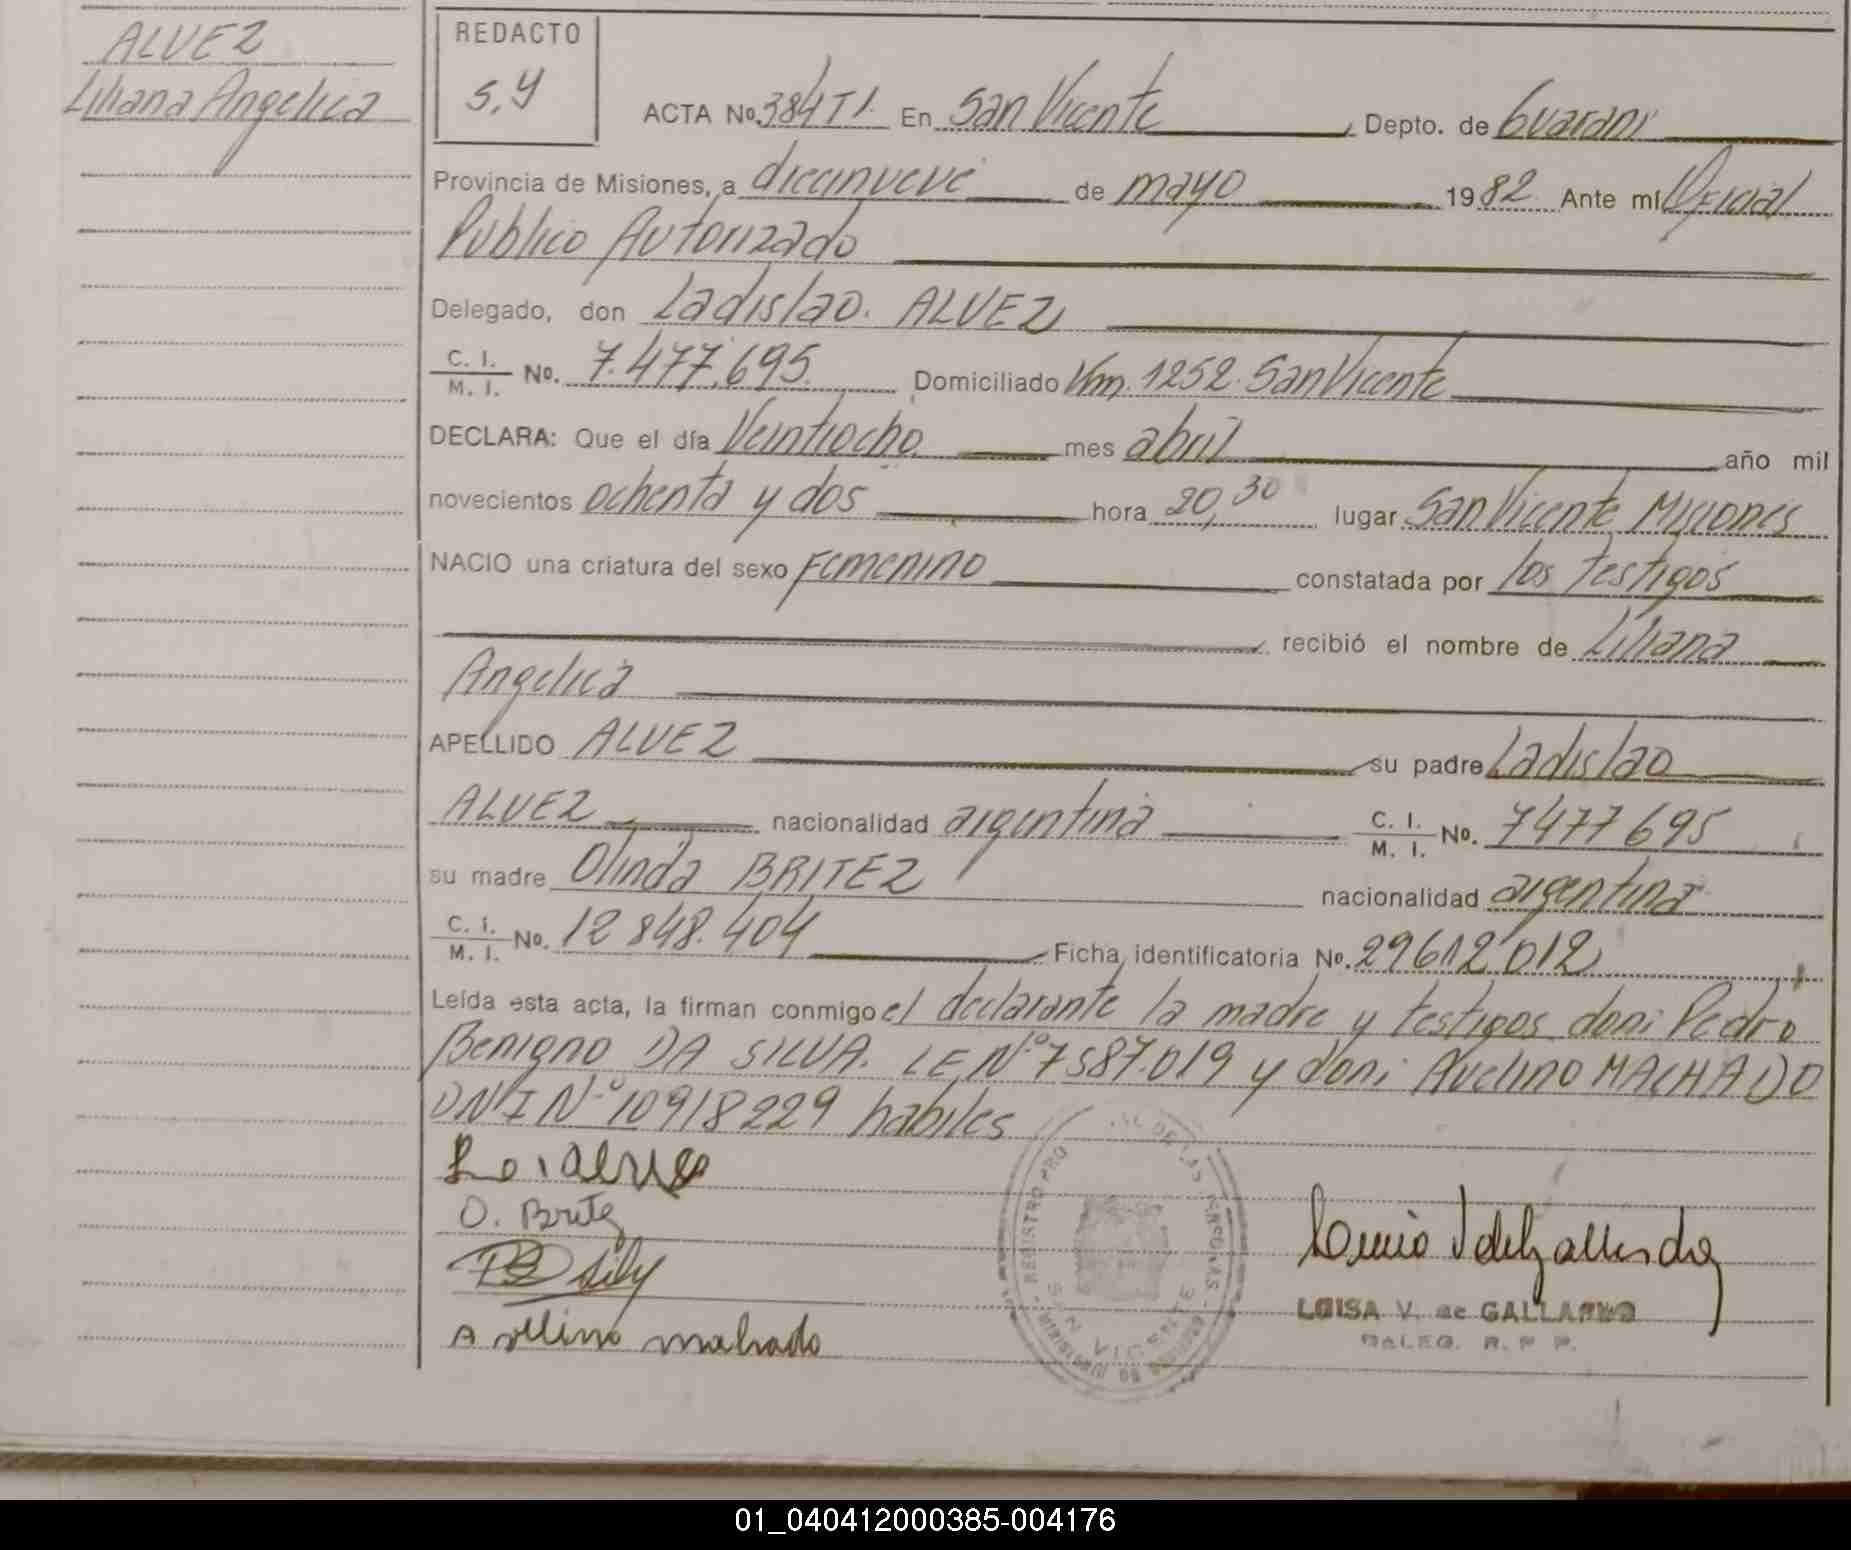 ALVEZ
Liliana Angelica
REDACTO
S.Y
ACTA No. 384 T I. En San Vicente Depto. de Guarani
Provincia de Misiones, a diecinueve de mayo 1982 Ante mí Oficial
Publico Autorizado
Delegado, don Ladislao. ALVEZ
C. I. / M. I. No. 7.477.695. Domiciliado Km. 1252. San Vicente
DECLARA: Que el día Veintiocho mes abril año mil
novecientos ochenta y dos hora 20,30 lugar San Vicente Misiones
NACIO una criatura del sexo Femenino constatada por los testigos
recibió el nombre de Liliana
Angelica
APELLIDO ALVEZ su padre Ladislao
ALVEZ nacionalidad argentina C. I. / M. I. No. 7477695
su madre Olinda BRITEZ nacionalidad argentina
C. I. / M. I. No. 12848.404 Ficha identificatoria No. 29612012
Leída esta acta, la firman conmigo el declarante la madre y testigos don: Pedro
Benigno DA SILVA. LE Nº 7587.019 y don: Avelino MACHADO
DNI Nº 10918229 habiles
O. Britez
Avellino machado
REGISTRO PRO DE LAS PERSONAS
SAN VICENTE
LUISA V. de GALLARDO
DELEG. R. P. P.
01_040412000385-004176